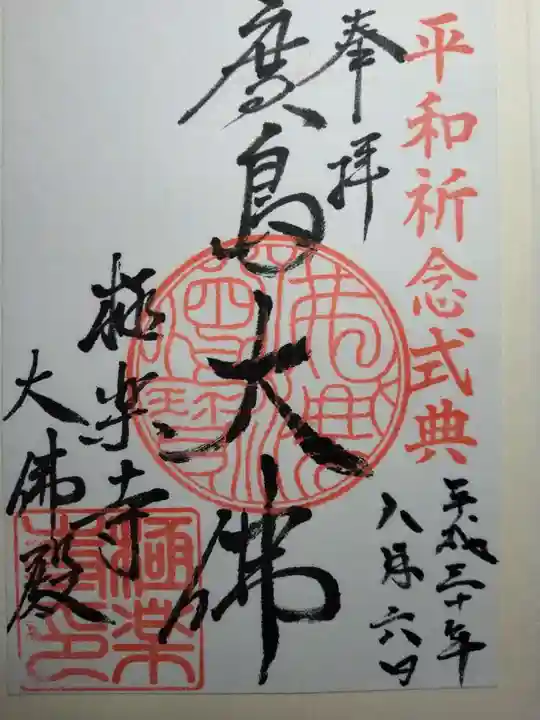 平和祈念式典
平成三十年
八月六日
奉拝
廣島大佛
極楽寺
大佛殿
極楽寺印